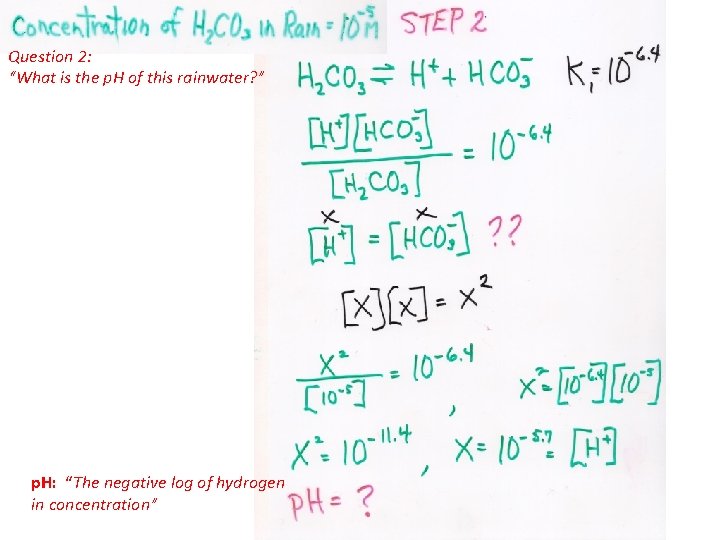 Concentration of H₂CO₃ in Rain = 10⁻⁵ M
STEP 2
Question 2:
“What is the p. H of this rainwater? ”
H₂CO₃ ⇌ H⁺ + HCO₃⁻ K₁=10⁻⁶·⁴
[H⁺][HCO₃⁻] / [H₂CO₃] = 10⁻⁶·⁴
x x
[H⁺] = [HCO₃⁻] ??
[x][x] = x²
x² / [10⁻⁵] = 10⁻⁶·⁴ , x²=[10⁻⁶·⁴][10⁻⁵]
x² = 10⁻¹¹·⁴ , x= 10⁻⁵·⁷ = [H⁺]
p. H: “The negative log of hydrogen
in concentration”
pH = ?